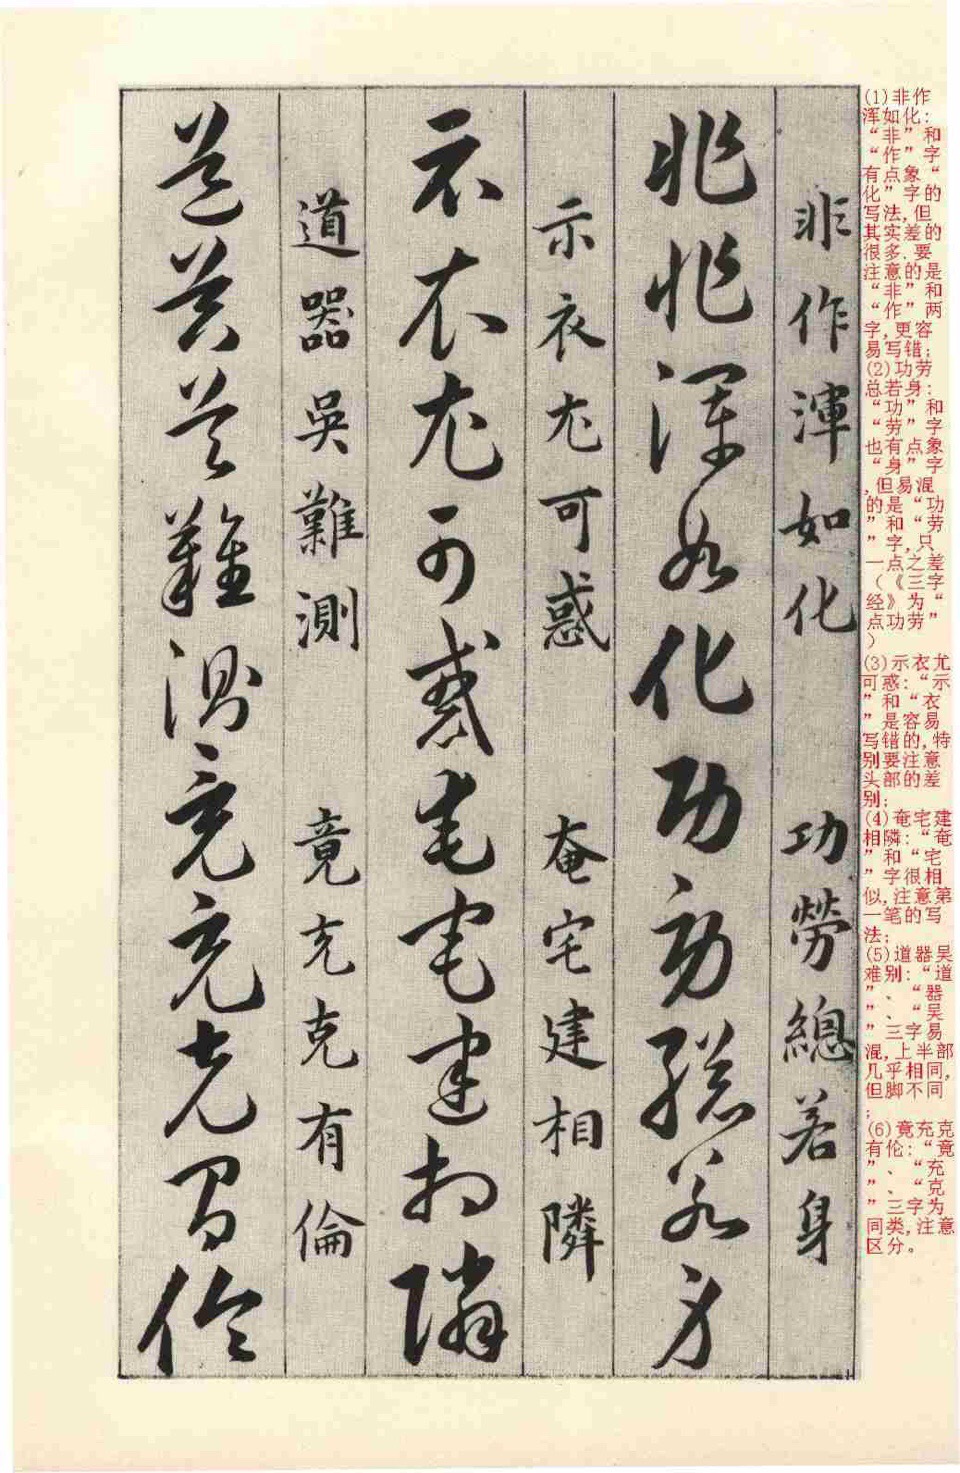 (1)非作
浑如化:
“非”和
“作”字
有点象“
化”字的
写法,但
其实差的
很多.要
注意的是
“非”和
“作”两
字,更容
易写错;
(2)功劳
总若身:
“功”和
“劳”字
也有点象
“身”字
,但易混
的是“功
”和“劳
”字,只
一点之差
(《三字
经》为“
点功劳”
)
(3)示衣尤
可惑:“示
”和“衣
”是容易
写错的,特
别要注意
头部的差
别;
(4)奄宅建
相隣:“奄
”和“宅
”字很相
似,注意第
一笔的写
法;
(5)道器吴
难别:“道
”、“器
”、“吴
”三字易
混,上半部
几乎相同,
但脚不同
;
(6)竟充克
有伦:“竟
”、“充
”、“克
”三字为
同类,注意
区分。
非作渾如化 功勞總若身
非作渾如化功勞總若身
示衣尤可惑 奄宅建相隣
示衣尤可惑奄宅建相隣
道器吳難測 竟充克有倫
道器吳難測竟充克有倫